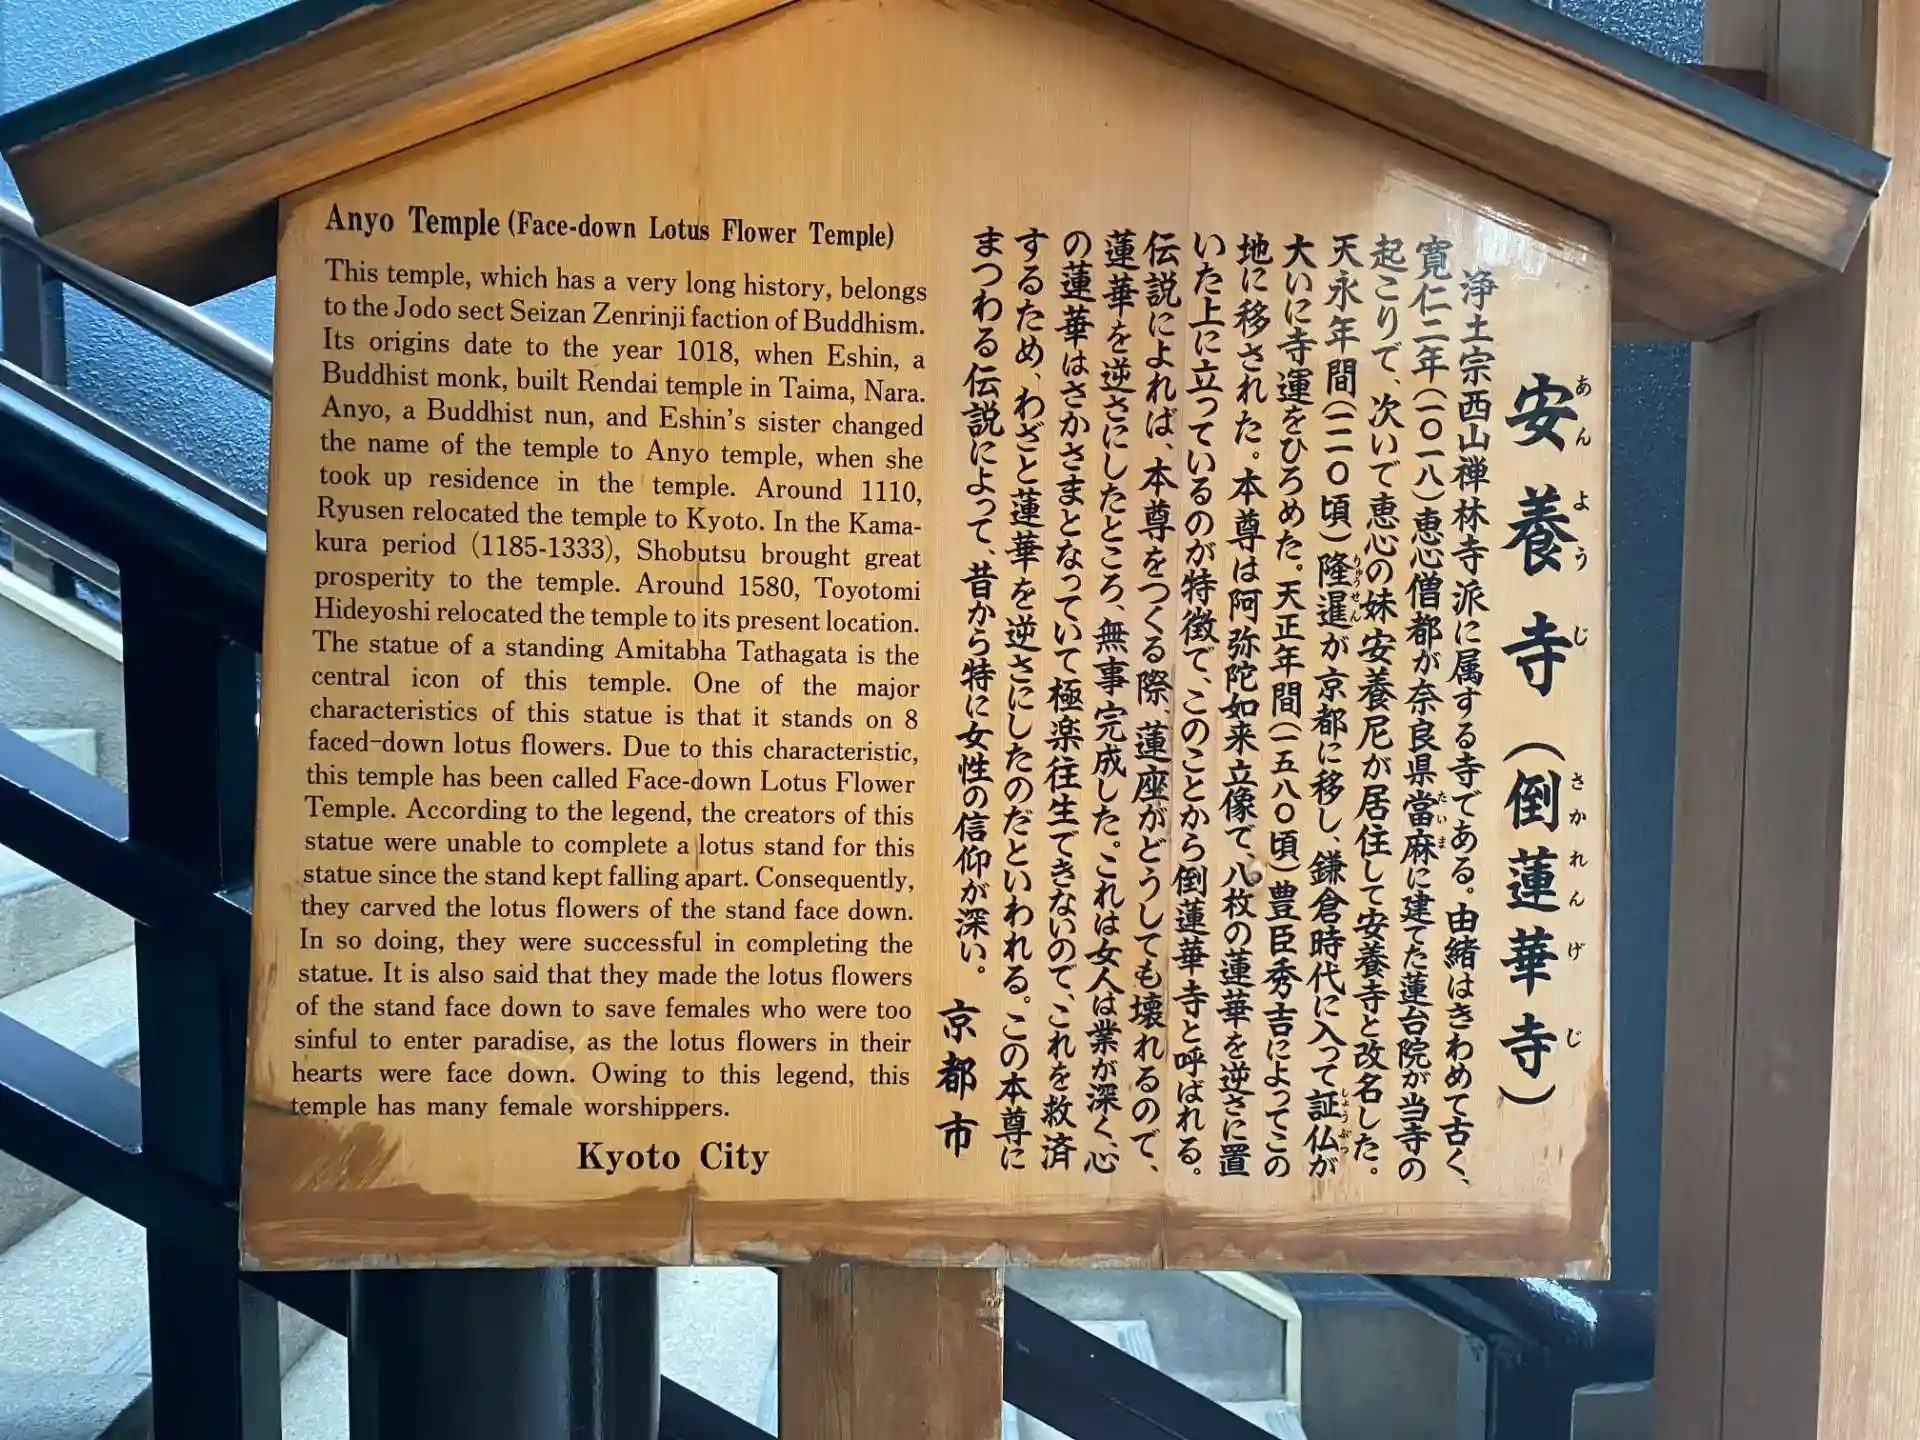 Anyo Temple (Face-down Lotus Flower Temple)
This temple, which has a very long history, belongs
to the Jodo sect Seizan Zenrinji faction of Buddhism.
Its origins date to the year 1018, when Eshin, a
Buddhist monk, built Rendai temple in Taima, Nara.
Anyo, a Buddhist nun, and Eshin's sister changed
the name of the temple to Anyo temple, when she
took up residence in the temple. Around 1110,
Ryusen relocated the temple to Kyoto. In the Kama-
kura period (1185-1333), Shobutsu brought great
prosperity to the temple. Around 1580, Toyotomi
Hideyoshi relocated the temple to its present location.
The statue of a standing Amitabha Tathagata is the
central icon of this temple. One of the major
characteristics of this statue is that it stands on 8
faced-down lotus flowers. Due to this characteristic,
this temple has been called Face-down Lotus Flower
Temple. According to the legend, the creators of this
statue were unable to complete a lotus stand for this
statue since the stand kept falling apart. Consequently,
they carved the lotus flowers of the stand face down.
In so doing, they were successful in completing the
statue. It is also said that they made the lotus flowers
of the stand face down to save females who were too
sinful to enter paradise, as the lotus flowers in their
hearts were face down. Owing to this legend, this
temple has many female worshippers.
Kyoto City
安養寺(倒蓮華寺)
あんようじ さかれんげじ
浄土宗西山禅林寺派に属する寺である。由緒はきわめて古く、
寛仁二年(一〇一八)恵心僧都が奈良県當麻に建てた蓮台院が当寺の
たいま
起こりで、次いで恵心の妹安養尼が居住して安養寺と改名した。
天永年間(一一一〇頃)隆暹が京都に移し、鎌倉時代に入って証仏が
りゅうせん しょうぶつ
大いに寺運をひろめた。天正年間(一五八〇頃)豊臣秀吉によってこの
地に移された。本尊は阿弥陀如来立像で、八枚の蓮華を逆さに置
いた上に立っているのが特徴で、このことから倒蓮華寺と呼ばれる。
伝説によれば、本尊をつくる際、蓮座がどうしても壊れるので、
蓮華を逆さにしたところ、無事完成した。これは女人は業が深く、心
の蓮華はさかさまとなっていて極楽往生できないので、これを救済
するため、わざと蓮華を逆さにしたのだといわれる。この本尊に
まつわる伝説によって、昔から特に女性の信仰が深い。
京都市